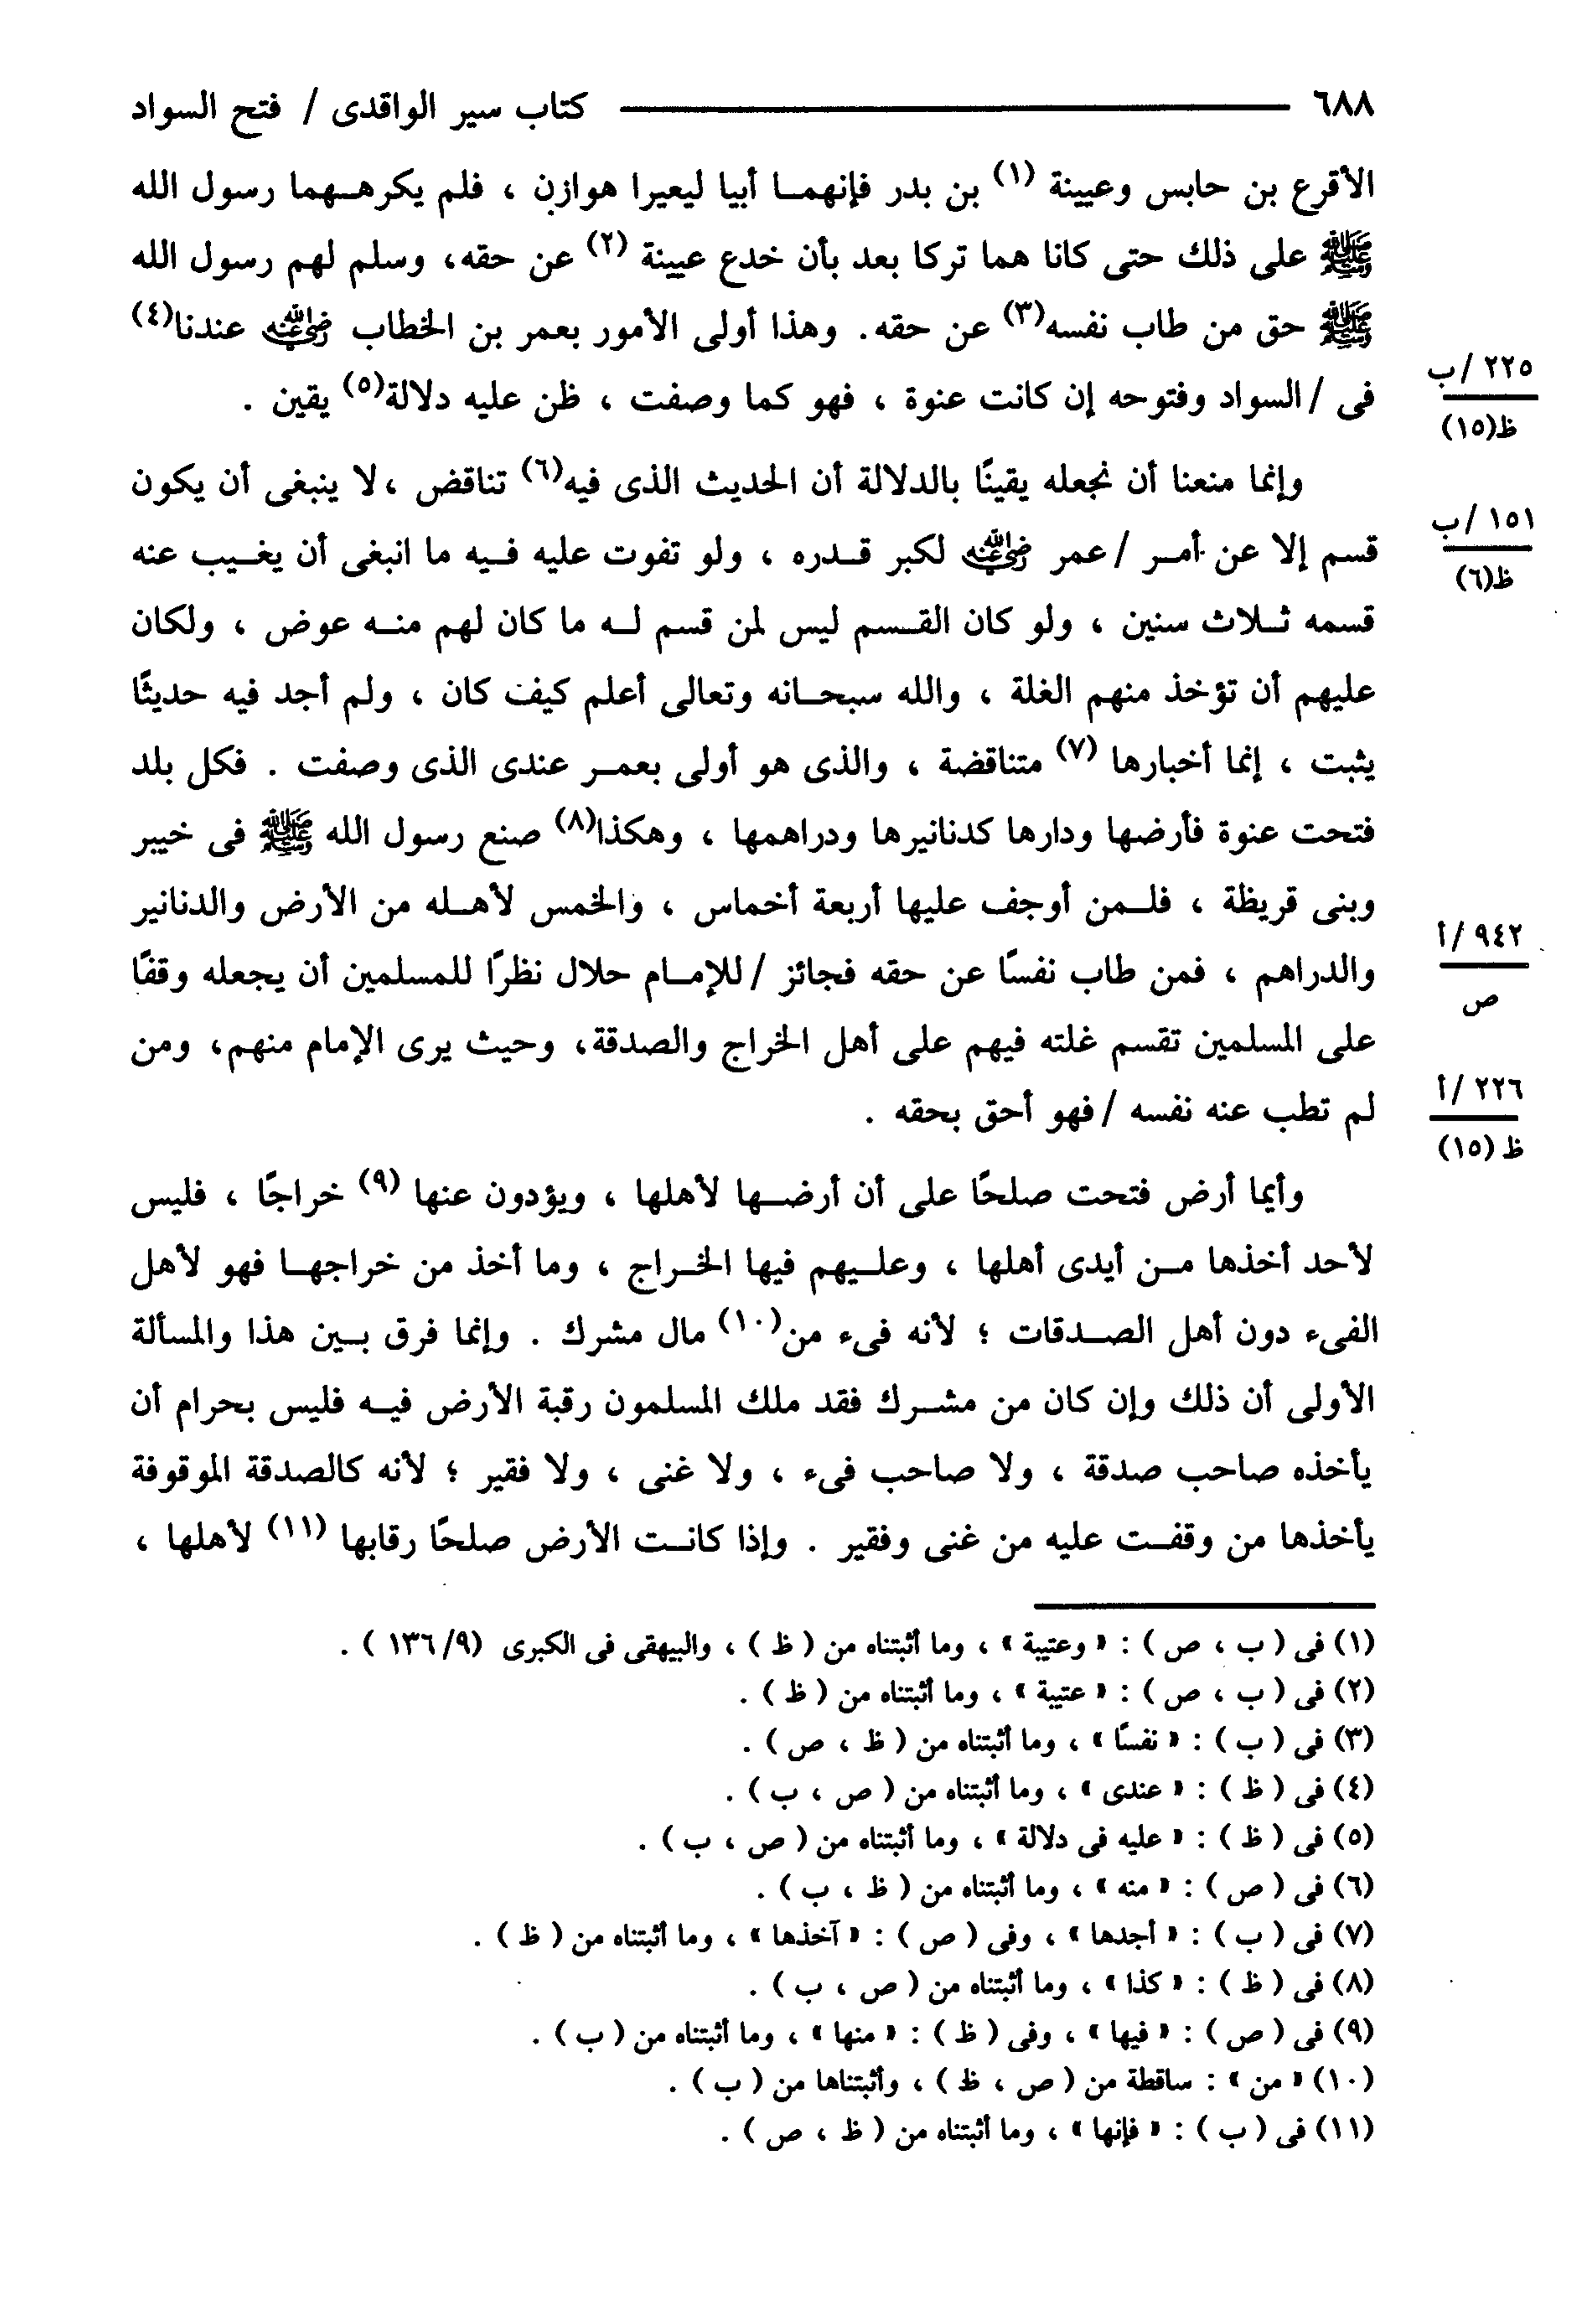 ٦٨٨ ــــــــــــــــــــ كتاب سير الواقدى / فتح السواد
الأقرع بن حابس وعيينة (١) بن بدر فإنهمـا أبيا ليعيرا هوازن ، فلم يكرهـهما رسول الله
ﷺ على ذلك حتى كانا هما تركا بعد بأن خدع عيينة (٢) عن حقه، وسلم لهم رسول الله
ﷺ حق من طاب نفسه(٣) عن حقه. وهذا أولى الأمور بعمر بن الخطاب رضي الله عنه عندنا(٤)
فى / السواد وفتوحه إن كانت عنوة ، فهو كما وصفت ، ظن عليه دلالة(٥) يقين .
٢٢٥ /ب
ظ(١٥)
وإنما منعنا أن نجعله يقينًا بالدلالة أن الحديث الذى فيه(٦) تناقض ،لا ينبغى أن يكون
قسم إلا عن أمـر / عمر رضي الله عنه لكبر قـدره ، ولو تفوت عليه فـيه ما انبغى أن يغـيب عنه
١٥١ /ب
ظ(٦)
قسمه ثـلاث سنين ، ولو كان القـسم ليس لمن قسم لـه ما كان لهم منـه عوض ، ولكان
عليهم أن تؤخذ منهم الغلة ، والله سبحـانه وتعالى أعلم كيف كان ، ولم أجد فيه حديثًا
يثبت ، إنما أخبارها (٧) متناقضة ، والذى هو أولى بعمـر عندى الذى وصفت . فكل بلد
فتحت عنوة فأرضها ودارها كدنانيرها ودراهمها ، وهكذا(٨) صنع رسول الله ﷺ فى خيبر
وبنى قريظة ، فلـمن أوجف عليها أربعة أخماس ، والخمس لأهـله من الأرض والدنانير
والدراهم ، فمن طاب نفسًا عن حقه فجائز / للإمـام حلال نظرًا للمسلمين أن يجعله وقفًا
٩٤٢ /أ
ص
على المسلمين تقسم غلته فيهم على أهل الخراج والصدقة، وحيث يرى الإمام منهم، ومن
لم تطب عنه نفسه / فهو أحق بحقه .
٢٢٦ /أ
ظ (١٥)
وأيما أرض فتحت صلحًا على أن أرضـها لأهلها ، ويؤدون عنها (٩) خراجًا ، فليس
لأحد أخذها مـن أيدى أهلها ، وعلـيهم فيها الخـراج ، وما أخذ من خراجهـا فهو لأهل
الفىء دون أهل الصـدقات ؛ لأنه فىء من(١٠) مال مشرك . وإنما فرق بـين هذا والمسألة
الأولى أن ذلك وإن كان من مشـرك فقد ملك المسلمون رقبة الأرض فيـه فليس بحرام أن
يأخذه صاحب صدقة ، ولا صاحب فىء ، ولا غنى ، ولا فقير ؛ لأنه كالصدقة الموقوفة
يأخذها من وقفـت عليه من غنى وفقير . وإذا كانـت الأرض صلحًا رقابها (١١) لأهلها ،
(١) فى ( ب ، ص ) : « وعتيبة » ، وما أثبتناه من ( ظ ) ، والبيهقى فى الكبرى (٩/ ١٣٦ ) .
(٢) فى ( ب ، ص ) : « عتيبة » ، وما أثبتناه من ( ظ ) .
(٣) فى ( ب ) : « نفسًا » ، وما أثبتناه من ( ظ ، ص ) .
(٤) فى ( ظ ) : « عندى » ، وما أثبتناه من ( ص ، ب ) .
(٥) فى ( ظ ) : « عليه فى دلالة » ، وما أثبتناه من ( ص ، ب ) .
(٦) فى ( ص ) : « منه » ، وما أثبتناه من ( ظ ، ب ) .
(٧) فى ( ب ) : « أجدها » ، وفى ( ص ) : « آخذها » ، وما أثبتناه من ( ظ ) .
(٨) فى ( ظ ) : « كذا » ، وما أثبتناه من ( ص ، ب ) .
(٩) فى ( ص ) : « فيها » ، وفى ( ظ ) : « منها » ، وما أثبتناه من ( ب ) .
(١٠) « من » : ساقطة من ( ص ، ظ ) ، وأثبتناها من ( ب ) .
(١١) فى ( ب ) : « فإنها » ، وما أثبتناه من ( ظ ، ص ) .